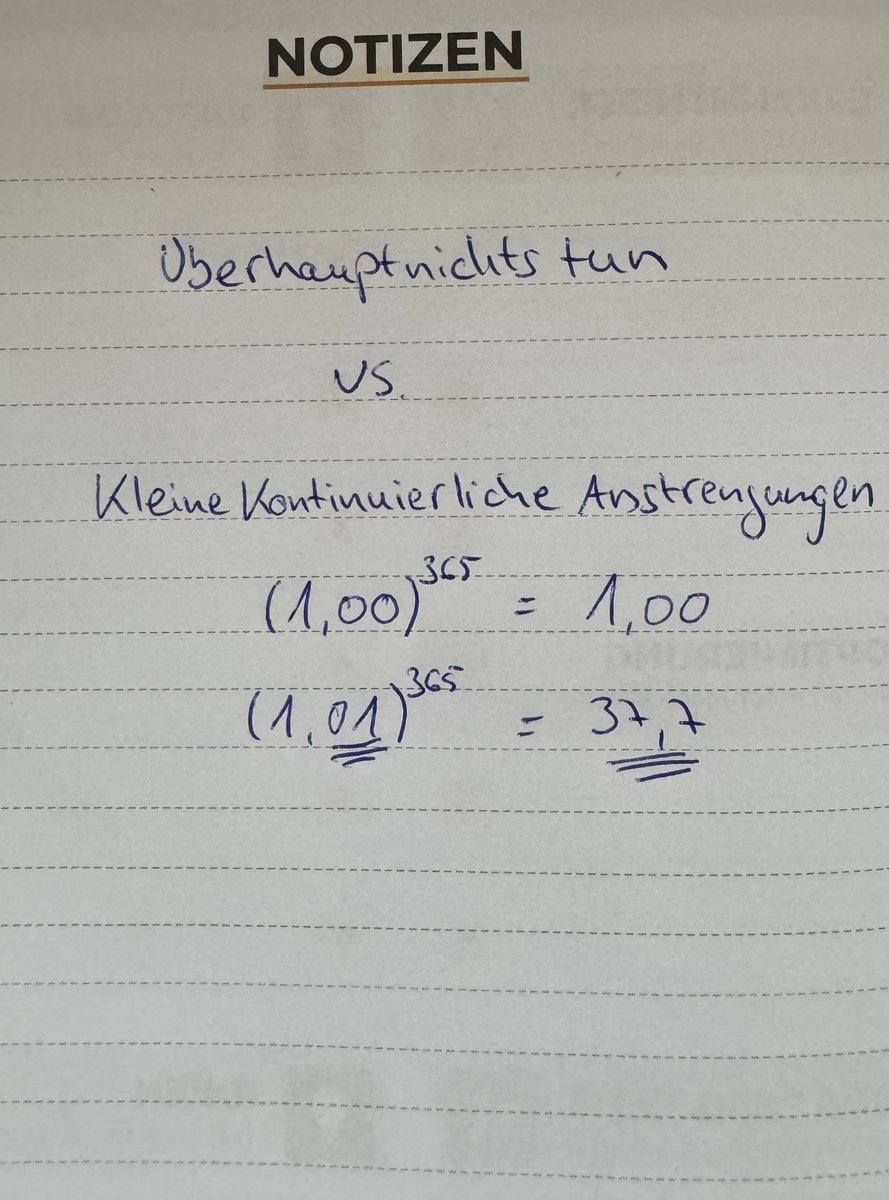 NOTIZEN
Überhaupt nichts tun
vs.
Kleine Kontinuierliche Anstrengungen
(1,00)³⁶⁵ = 1,00
(1,01)³⁶⁵ = 37,7